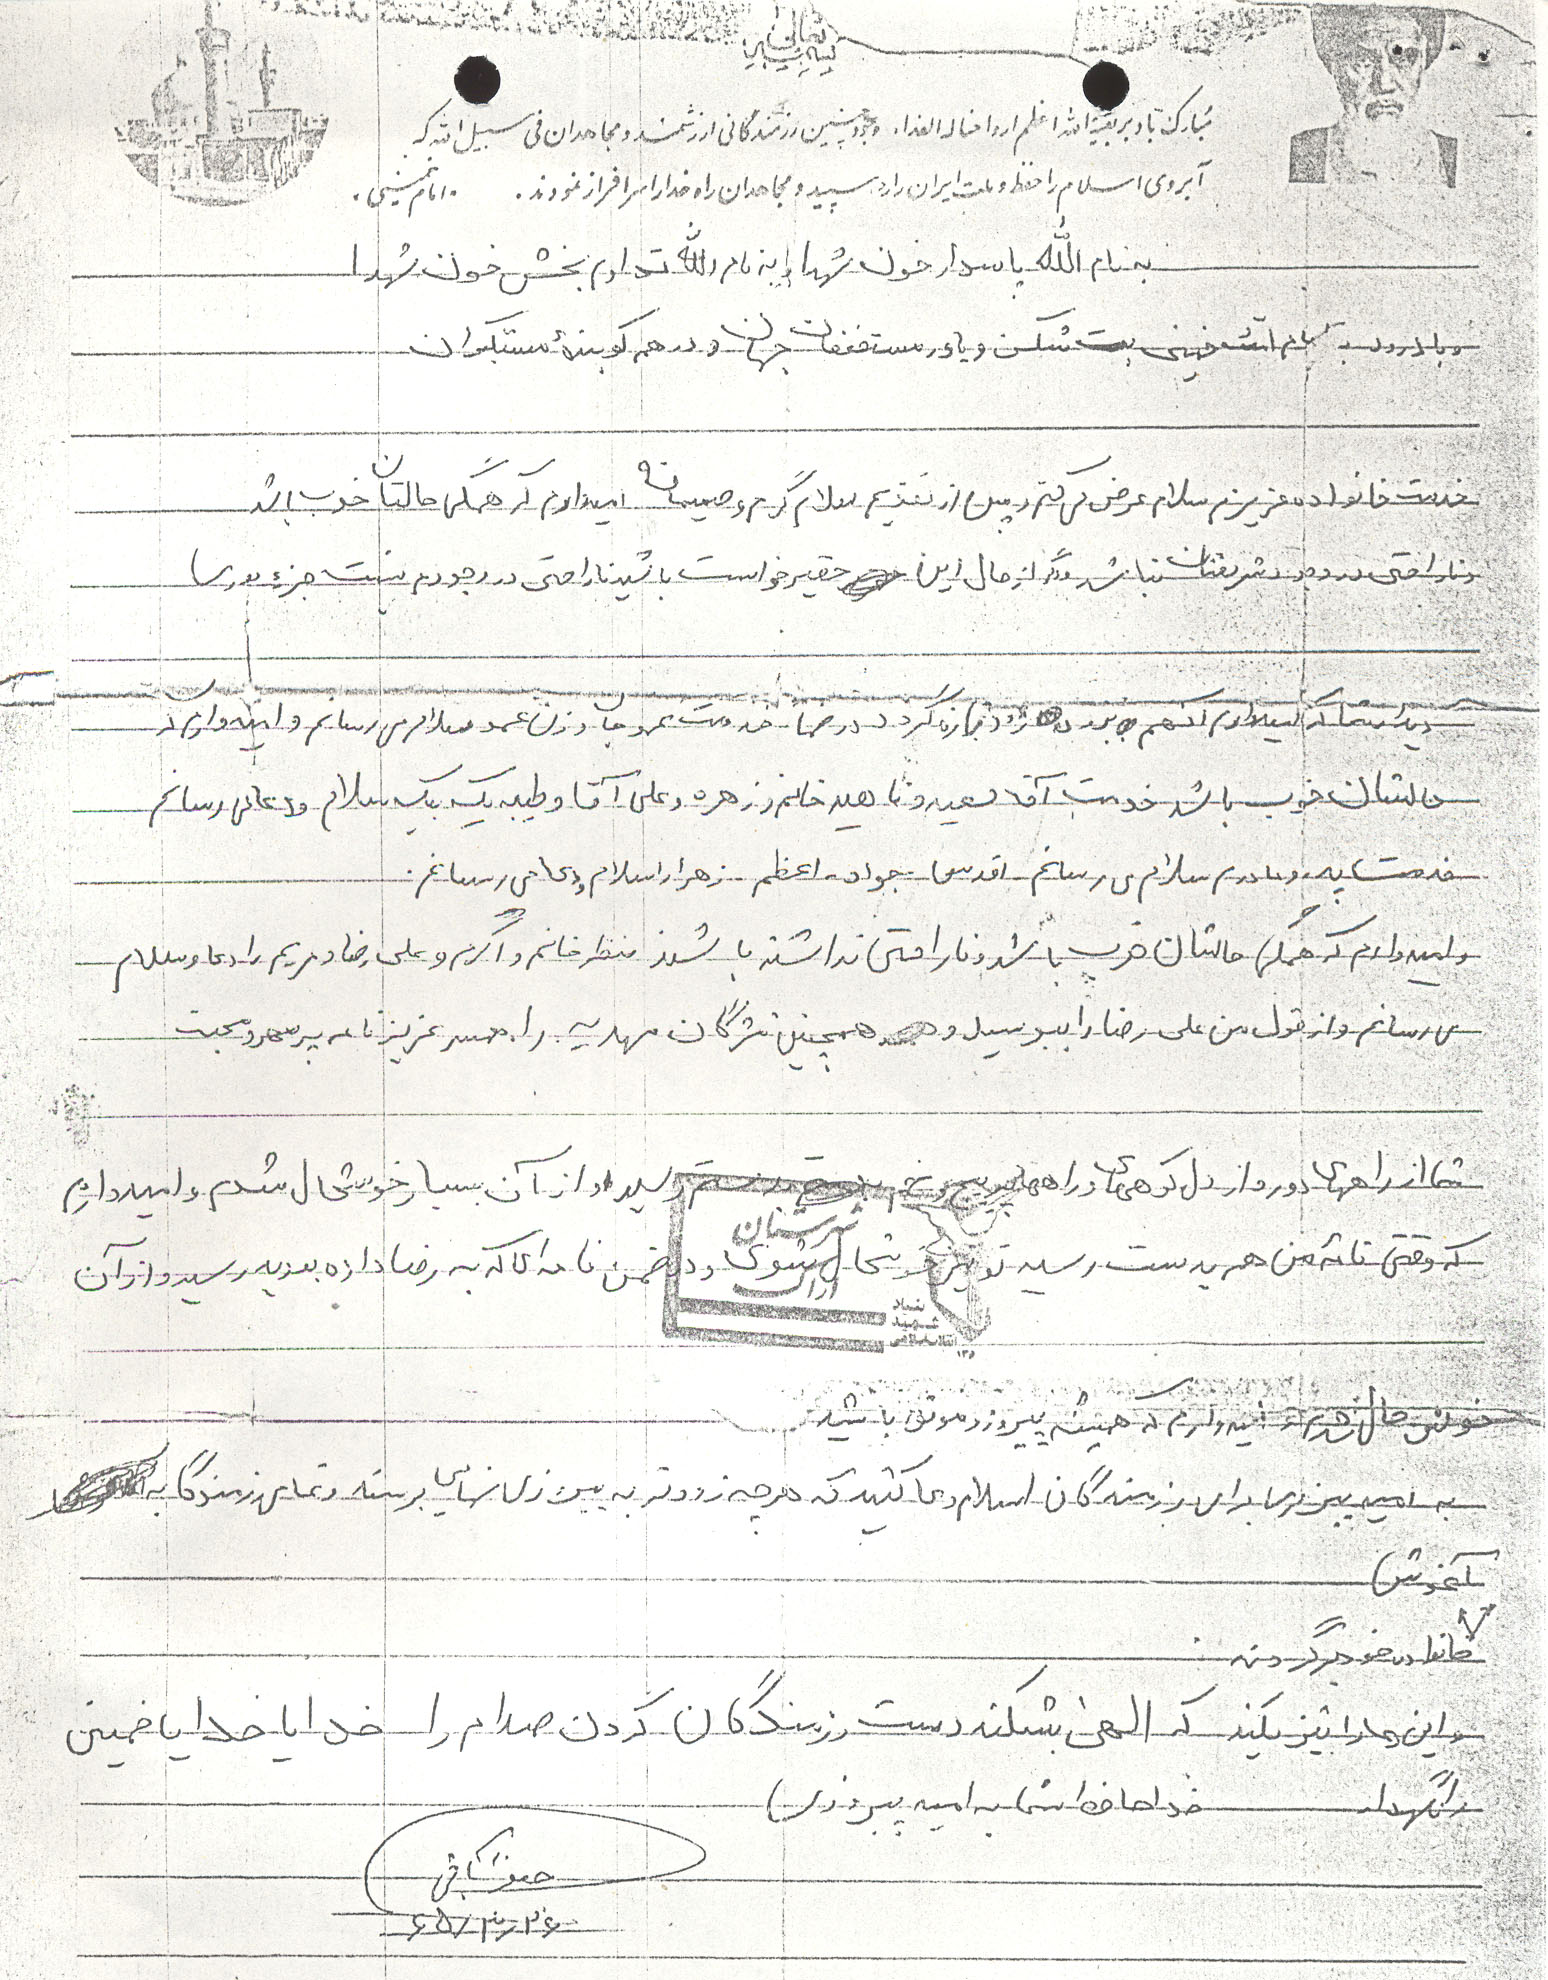 بسمه تعالی
مبارک باد بر بقیة الله اعظم ارواحنا له الفداء، وجود چنین رزمندگانی ارزشمند و مجاهدان فی سبیل الله که
آبروی اسلام را حفظ و ملت ایران را رو سپید و مجاهدان راه خدا را سرافراز نمودند. «امام خمینی»
به نام الله پاسدار خون شهدا به نام الله تداوم بخش خون شهدا
و با درود به امام امت خمینی بت شکن و یاور مستضعفان جهان و در هم کوبندۀ مستکبران
خدمت خانواده عزیزم سلام عرض می کنم و پس از تقدیم سلام گرم و صمیمانه امیدوارم که همگی حالتان خوب باشد
و ناراحتی در وجود شریفتان نباشد و اگر از حال این حقیر خواست باشید ناراحتی در وجودم نیست جزء دوری
دیدار شما که امیدوارم آنهم بزودی زود تازه گردد در ضمن خدمت عمو جان و زن عمو سلام می رسانم و امیدوارم که
حالتشان خوب باشد خدمت آقا سعید و ناهید خانم و زهره و علی آقا و طیبه یک یک سلام و دعا می رسانم
خدمت پدر و مادرم سلام می رسانم اقدس - جواد - اعظم - زهرا را سلام و دعا می رسانم.
و امیدوارم که همگی حالتشان خوب باشد و ناراحتی نداشته باشند منظر خانم و اکرم و علی رضا و مریم را دعا و سلام
می رسانم و از قول من علی رضا را ببوسید و همچنین مژگان مهدیه را. همسر عزیز نامه پر مهر و محبت
شما از راههای دور و از دل کوههای و راههای پر پیچ و خم بدستم رسید و از آن بسیار خوشحال شدم و امیدوارم
که وقتی نامۀ من هم بدست رسید تو نیز خوشحال شوی و در ضمن نامه ای که به رضا داده بودید رسید و از آن
خوش حال شدم امیدوارم که همیشه پیروز و موفق باشید
به امید پیروزی برای رزمندگان اسلام دعا کنید که هر چه زودتر به پیروزی نهایی برسند و تمامی رزمندگان به
آغوش
خانواده خود برگردند
و این دعا را نیز بکنید که الهی بشکند دست رزمندگان گردن صدام را خدایا خدایا خمینی
را نگهدار خداحافظ شما به امید پیروزی
۶۵/۳/۲۶
شهرستان
اراک
بنیاد
شهید
انقلاب اسلامی